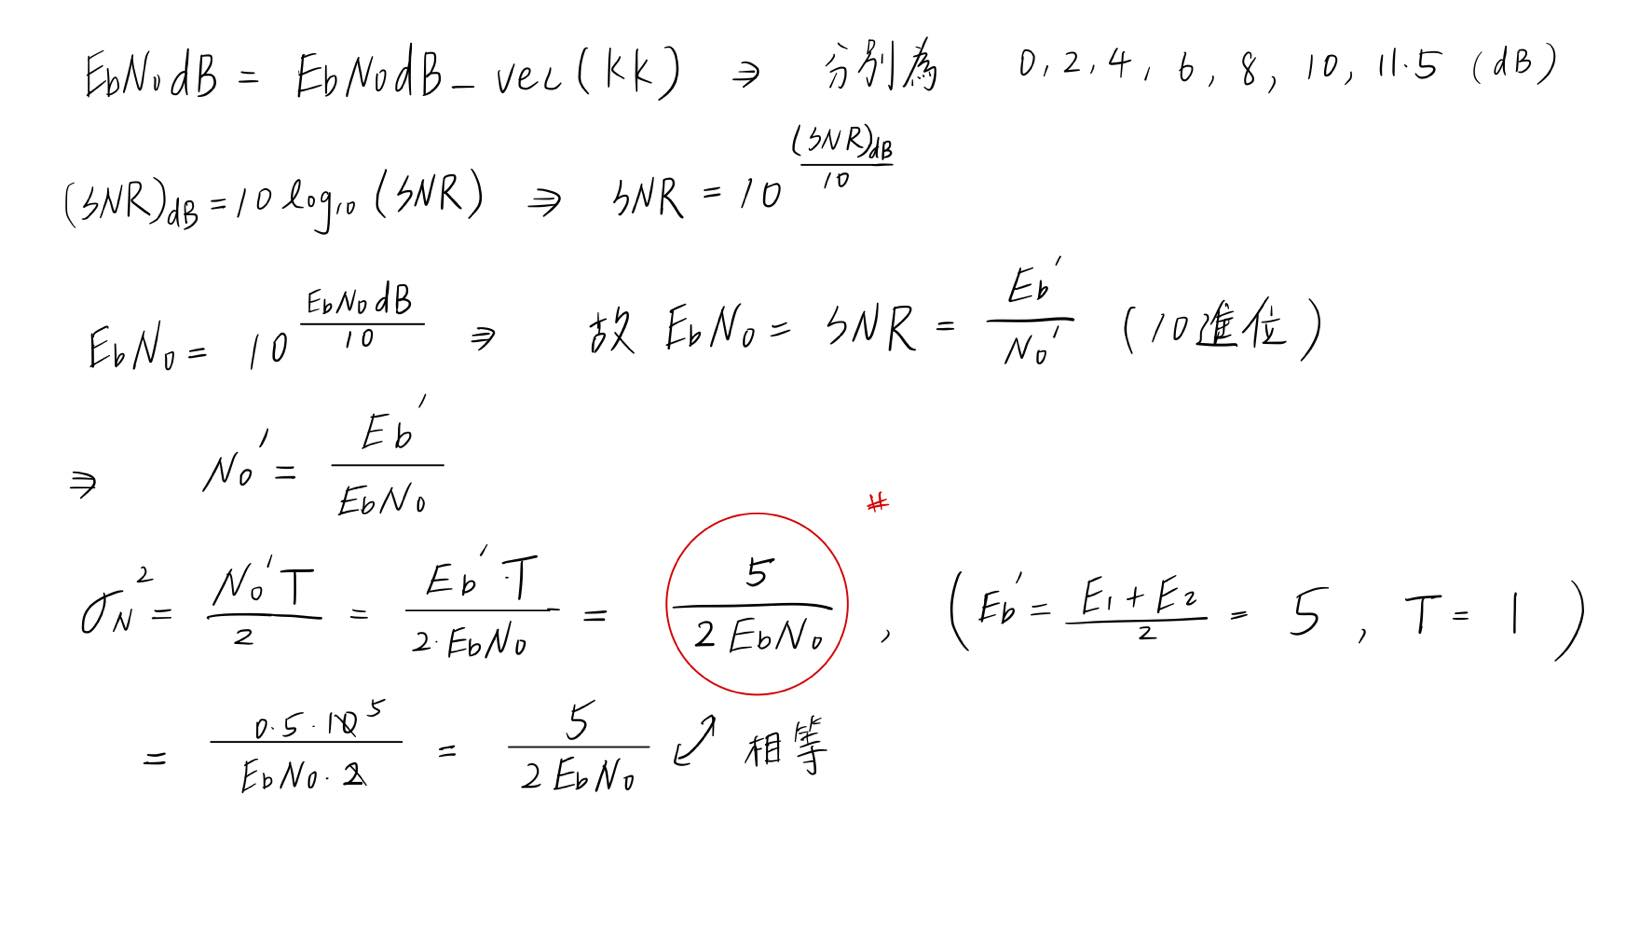 EbN0dB = EbN0dB_vec(kk) ⇒ 分別為 0, 2, 4, 6, 8, 10, 11.5 (dB)
(SNR)dB = 10 log10 (SNR) ⇒ SNR = 10^((SNR)dB/10)
EbN0 = 10^(EbN0dB/10) ⇒ 故 EbN0 = SNR = Eb'/N0' (10進位)
⇒ N0' = Eb'/EbN0
#
σN² = N0'T/2 = Eb'·T/(2·EbN0) = 5/(2EbN0) , (Eb' = (E1+E2)/2 = 5 , T = 1)
= 0.5·10 5/(EbN0·2) = 5/(2EbN0) 相等